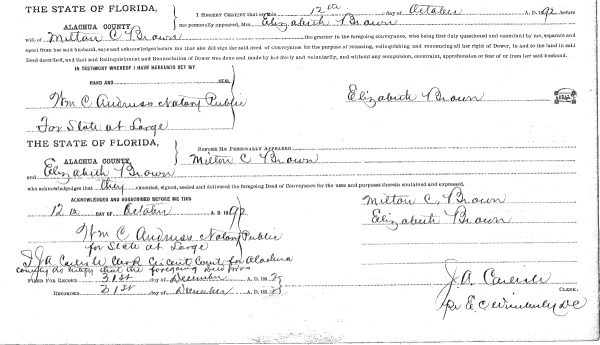 THE STATE OF FLORIDA,
ALACHUA COUNTY.
I HEREBY CERTIFY that on this 12th day of October 1892 before
me personally appeared, Mrs. Elizabeth Brown
wife of Milton C Brown the grantor in the foregoing conveyance, who being first duly questioned and examined by me, separate and
apart from her said husband, says and acknowledges before me that she did sign the said deed of Conveyance for the purpose of releasing, relinquishing and renouncing all her right of Dower, in and to the land in said
Deed described, and that said Relinquishment and Renunciation of Dower was done and made by her freely and voluntarily, and without any compulsion, constraint, apprehension or fear of or from her said husband.
IN TESTIMONY WHEREOF I HAVE HEREUNTO SET MY
HAND AND
Wm C Andruss Notary Public
Elizabeth Brown
SEAL
For State at Large
THE STATE OF FLORIDA,
ALACHUA COUNTY.
BEFORE ME PERSONALLY APPEARED
Milton C Brown
and Elizabeth Brown
who acknowledges that they executed, signed, sealed and delivered the foregoing Deed of Conveyance for the uses and purposes therein contained and expressed.
ACKNOWLEDGED AND SUBSCRIBED BEFORE ME THIS
12th DAY OF October A. D. 1892
Milton C. Brown
Elizabeth Brown
Wm C Andruss Notary Public
for State at Large
I J A Carlisle Clerk Circuit Court for Alachua
county do certify that the foregoing Deed was
FILED FOR RECORD 31st day of December A. D. 1892
RECORDED 31st day of December A. D. 1892
J. A. Carlisle CLERK.
Pr E. C Wimberly DC